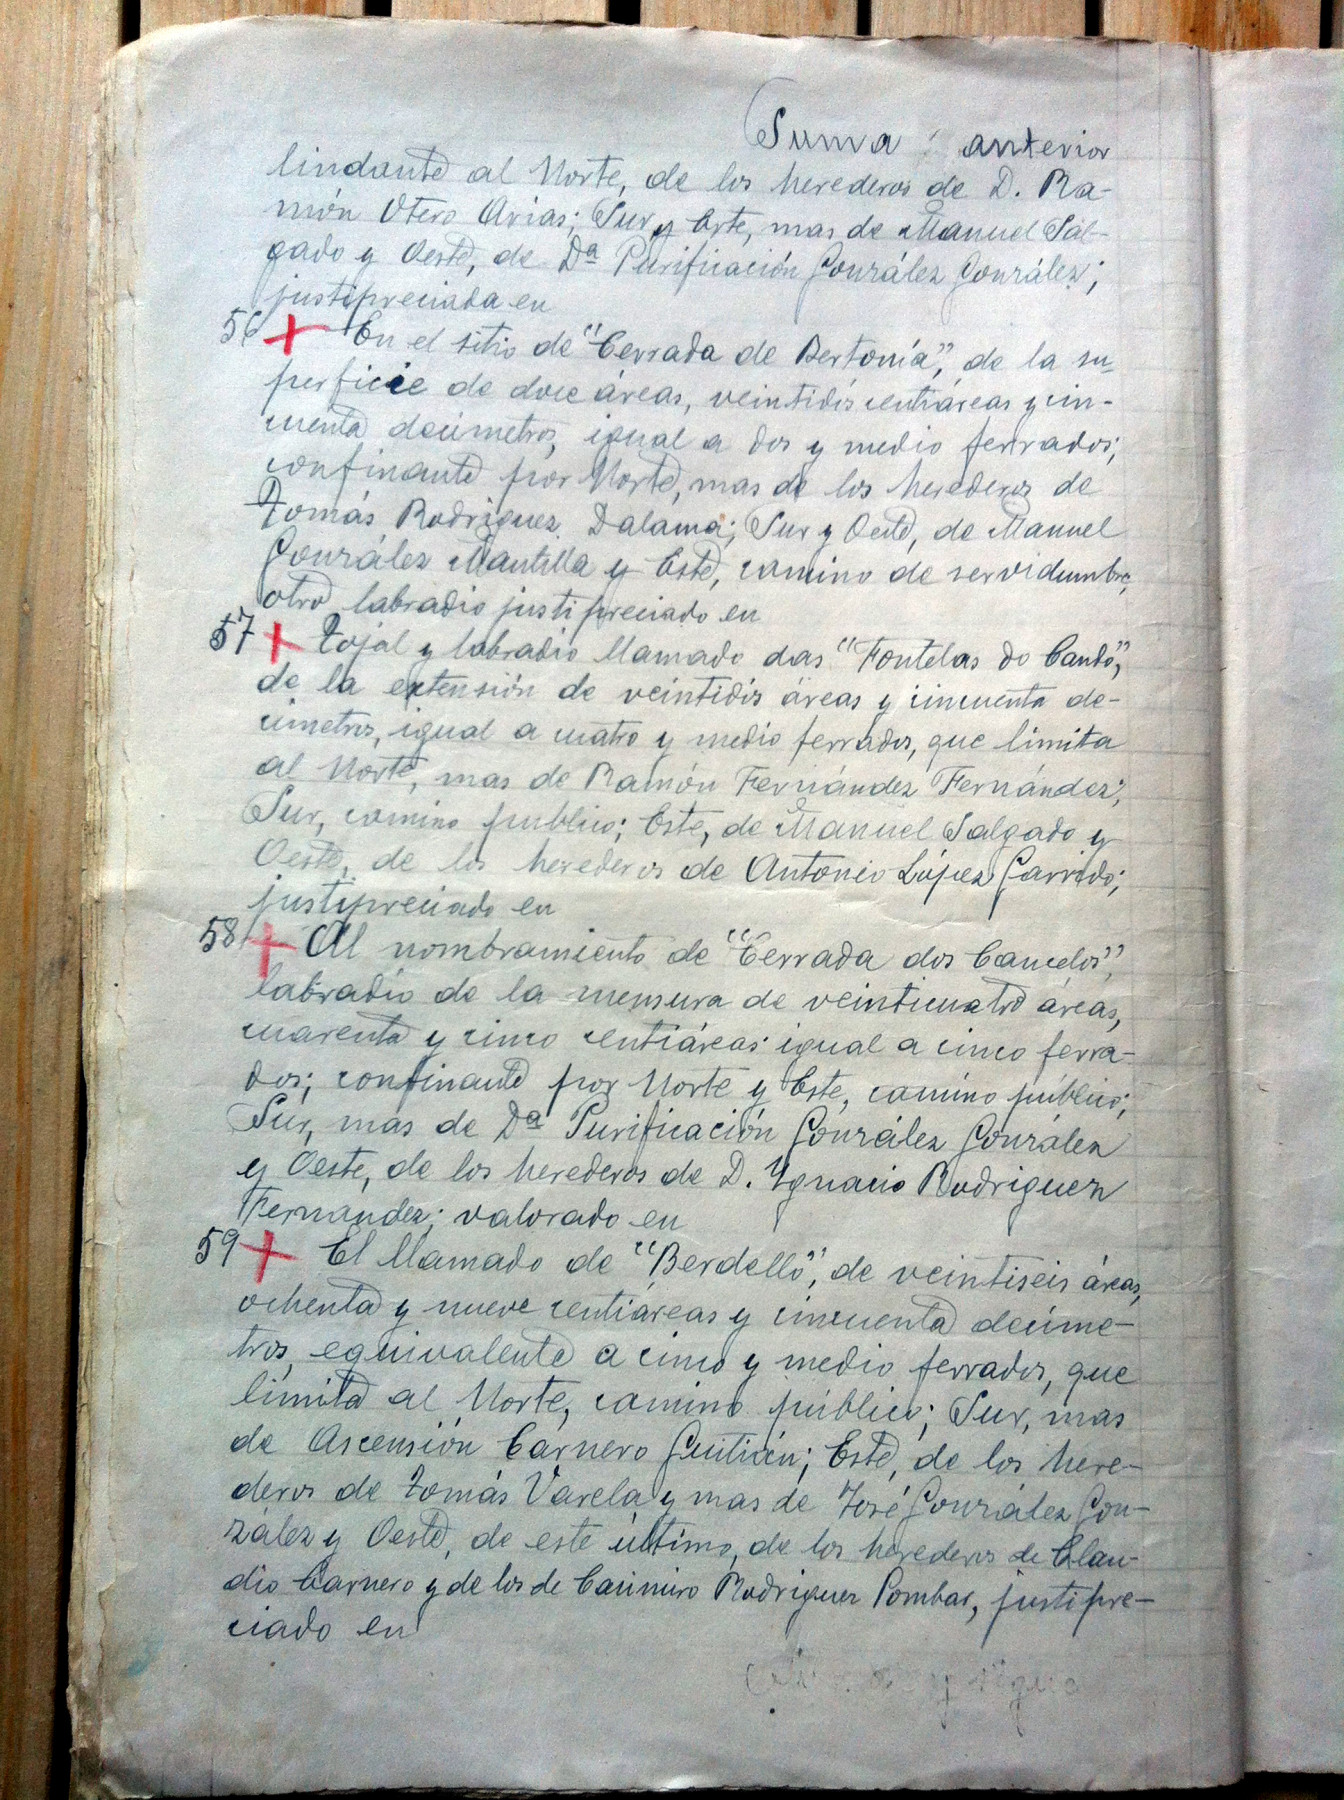 Suma anterior
lindante al Norte, de los herederos de D. Ra-
món Otero Arias; Sur y Este, mas de Manuel Sal-
gado y Oeste, de Dª Purificación González González;
justipreciada en
56 + En el sitio de "Cerrada de Bertonía", de la su-
perficie de doce áreas, veintidós centiáreas y cin-
cuenta decímetros, igual a dos y medio ferrados;
confinante por Norte, mas de los herederos de
Tomás Rodriguez Dalama; Sur y Oeste, de Manuel
González Mantilla y Este, camino de servidumbre,
otro labradio justipreciado en
57 + Tojal y labradio llamado das "Fontelas do Cando",
de la extensión de veintidós áreas y cincuenta de-
címetros, igual a cuatro y medio ferrados, que limita
al Norte, mas de Ramón Fernández Fernández;
Sur, camino publico; Este, de Manuel Salgado y
Oeste, de los herederos de Antonio López Garrido;
justipreciado en
58 + Al nombramiento de "Cerrada dos Cancelos",
labradio de la mensura de veinticuatro áreas,
cuarenta y cinco centiáreas igual a cinco ferra-
dos; confinante por Norte y Este, camino público;
Sur, mas de Dª Purificación González González
y Oeste, de los herederos de D. Ygnacio Rodriguez
Fernandez; valorado en
59 + El llamado de "Berdello", de veintiseis áreas,
ochenta y nueve centiáreas y cincuenta decíme-
tros, equivalente a cinco y medio ferrados, que
limita al Norte, camino público; Sur, mas
de Ascensión Carnero Guitián; Este, de los here-
deros de Tomás Varela y mas de José González Gon-
zález y Oeste, de este último, de los herederos de Clau-
dio Carnero y de los de Casimiro Rodriguez Pombar, justipre-
ciado en
y sigue